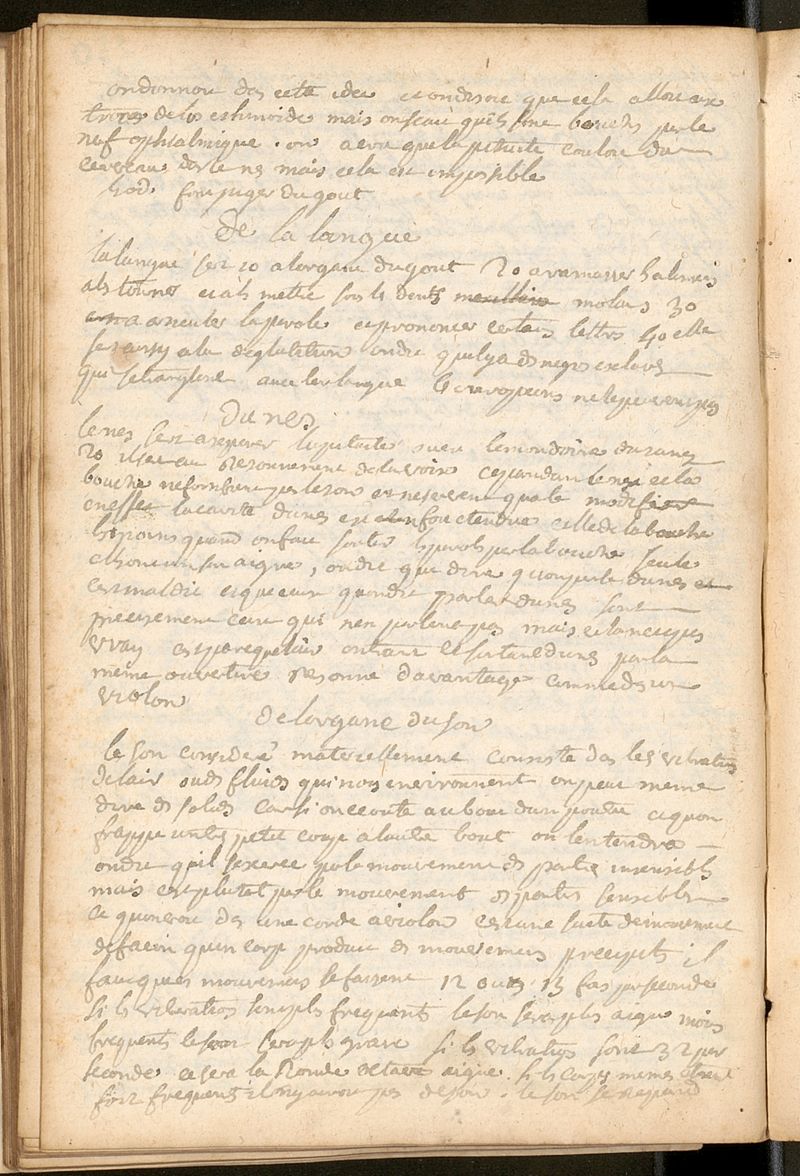 on donnoit des cette idee et on disoit que cela alloit aux
trous de los ethmoide mais on scait quils sont bouchés par le
nerf ophtalmique . on a cru que la pituite couloit du
cerveau dans le nes mais cela est impossible
font juger du gout
De la langue
la langue sert 10 a lorgane du gout 20 a ramasser les alimens
a les tourner et a les mettre sous les dents molaires 30
a articuler la parole et prononcer certains lettres 40 elle
sert aussi a la deglutition on dit quil y a des negres esclaves
qui setranglent avec leur langue les europeens ne le peuvent pas
Du nes
le nes sert a separer la pituite
20 il sert au resonnement de la voix cependant le nes et la
bouche ne forment pas le son et ne servent qua le modifier
en effet la cavité du nes est etendue celle de la bouche
moins quand on fait sortir la parole par la bouche seule
le son est aigre , on dit que dire quon parle du nes
est mal dit et que ceux quon dit parler du nes sont
precisement ceux qui nen parlent pas mais cela nest pas
vray est parceque lair entrant et sortant du nes par la
meme ouverture resonne davantage comme dans un
violon
De lorgane du son
le son consideré materiellement consiste dans les vibrations
de lair ou des fluides qui nous environnent on peut meme
dire des solides car si on ecoute au bout dun poutre et quon
frappe un petit coup a lautre bout on lentendra
on dit quil sexerce par le mouvement des parties insensibles
mais cest plutot par le mouvement des parties sensibles
ce quon voit dans une corde a violon cest une suite de mouvement
de facon quun corps produit des mouvemens il
faut que ses mouvemens se fassent 12 ou 13 fois par seconde
si les vibrations sont plus frequentes le son sera plus aigue moins
frequents le son sera plus grave si les vibrations sont 32 par
seconde ce sera la octave aigue . si les corps memes
fort frequents il ny auroit pas de son . le son se repand